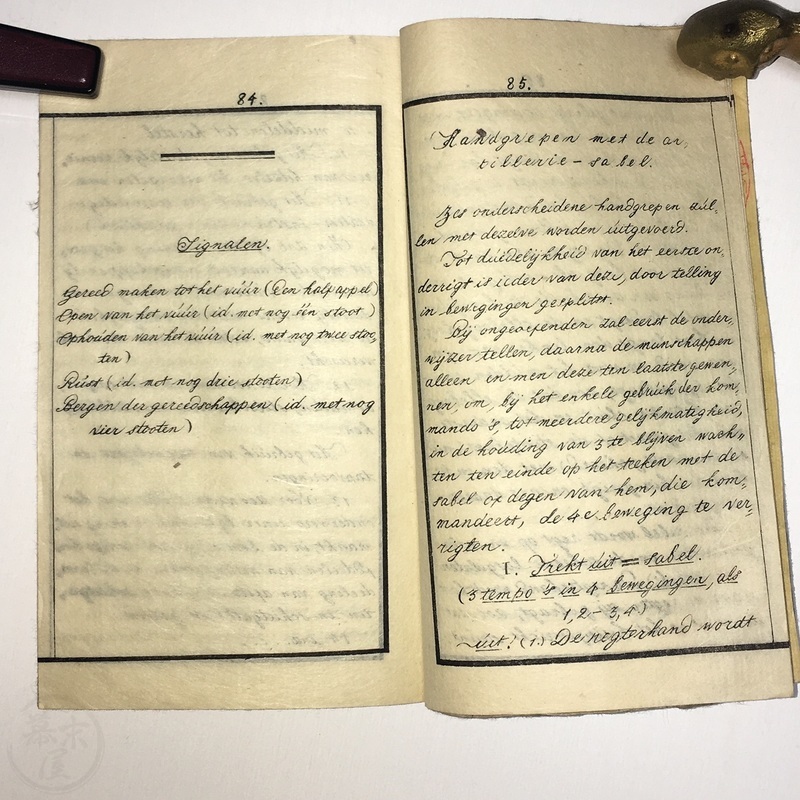 84.
Signalen.
Gereed maken tot het vúúr (Een half appel)
Open van het vúúr (id. met nog één stoot)
Ophoúden van het vúúr (id. met nog twee stoo,
ten)
Rúst (id. met nog drie stooten)
Bergen der gereedschappen (id. met nog
vier stooten)
85.
Handgrepen met de ar,
tillerie-sabel.
Zes onderscheidene handgrepen zúl,
len met dezelve worden úitgevoerd.
Tot dúidelijkheid van het eerste on,
derrigt is ieder van deze, door telling
in bewegingen gesplitst.
Bij ongeoefenden zal eerst de onder,
wijzer tellen, daarna de manschappen
alleen en men deze ten laatste gewen,
nen, om, bij het enkele gebrúik der kom,
mando's, tot meerdere gelijkmatigheid,
in de hoúding van 3 te blijven wach,
ten ten einde op het teeken met de
sabel of degen van hem, die kom,
mandeert, de 4e beweging te ver,
rigten.
1. Trekt úit = sabel.
(3 tempo's in 4 bewegingen, als
1, 2 - 3, 4.)
úit! (1.) De regterhand wordt
幕末屋